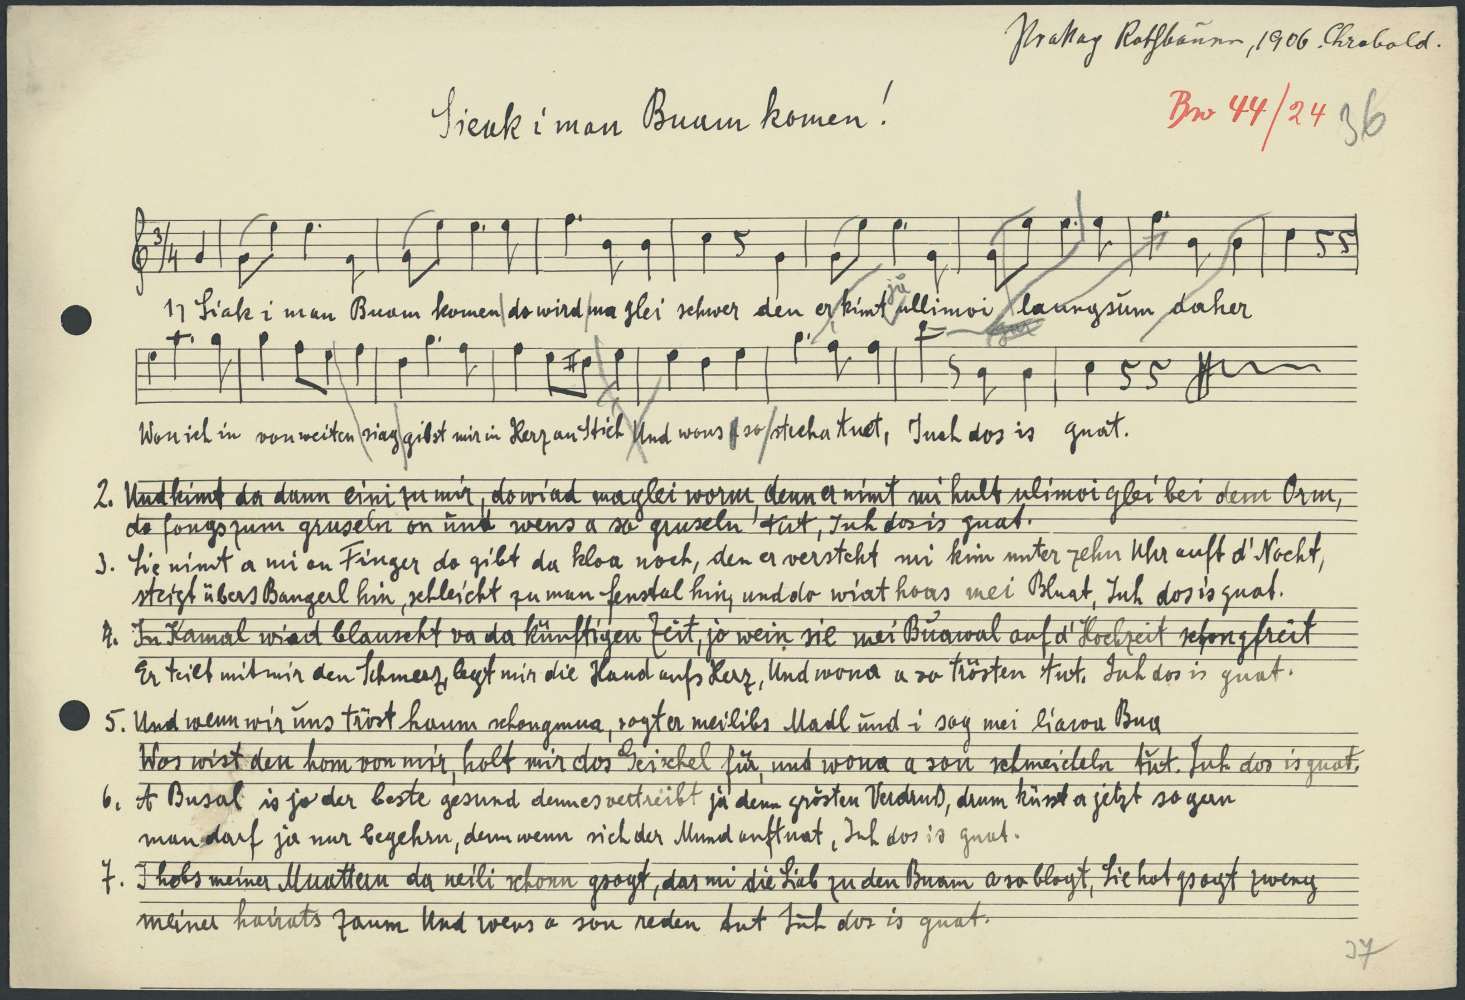 Rothbauer, 1906. Chrobold.
Sieak i man Buam komen!
Bw 44/24 36
3/4
ja
1) Siak i man Buam komen do wird ma glei schwer den er kimt ullimoi laungsům daher
Won ich in von weiten siag gibst mir in Herz an Stich Und wons a so stecha tuet, Juch dos is guat.
2. Und kimt da dann eini zu mir, do wiad ma glei worm, denn er nimt mi hult ulimoi glei bei dem Orm,
do fongs zum gruseln on ůnd wens a so gruseln tut, Juh dos is guat.
3. Sie nimt a mi on Finger do gibt da kloa noch, den er versteht mi kim unter zehn Uhr auft d' Nocht,
steigt übers Bangerl hin, schleicht zu man fenstal hin, und do wiat hoas mei Bluat, Juh dos is guat.
4. In Kamal wiad blauscht va da künftigen Zeit, jo wein sie mei Bůawal auf d' Hochzeit schon gfreit
Er teilt mit mir den Schmerz, legt mir die Hand aufs Herz, Und wona a so trösten tut. Juh dos is guat.
5. Und wenn wir ůns tröst haum schongmua, sogt er mei libs Madl ůnd i sog mei liawa Bua
Wos wist den hom von mir, holt mir dos Geischel für, und wona a son schmeicheln tůt. Juh dos is guat.
6. A Busal is jo der beste gesund dennes vertreibt ja denn grösten Verdruß, drum küsst er jetzt so gern
man darf ja nur begehrn, denn wenn sich der Mund auftuat, Juh dos is guat.
7. I hobs meiner Muattern da neili schonn gsogt, das mi die Liab zu den Buam a so blogt, Sie hot gsogt zweng
meiner hairats zaum Und wens a son reden tut Juh dos is guat.
37